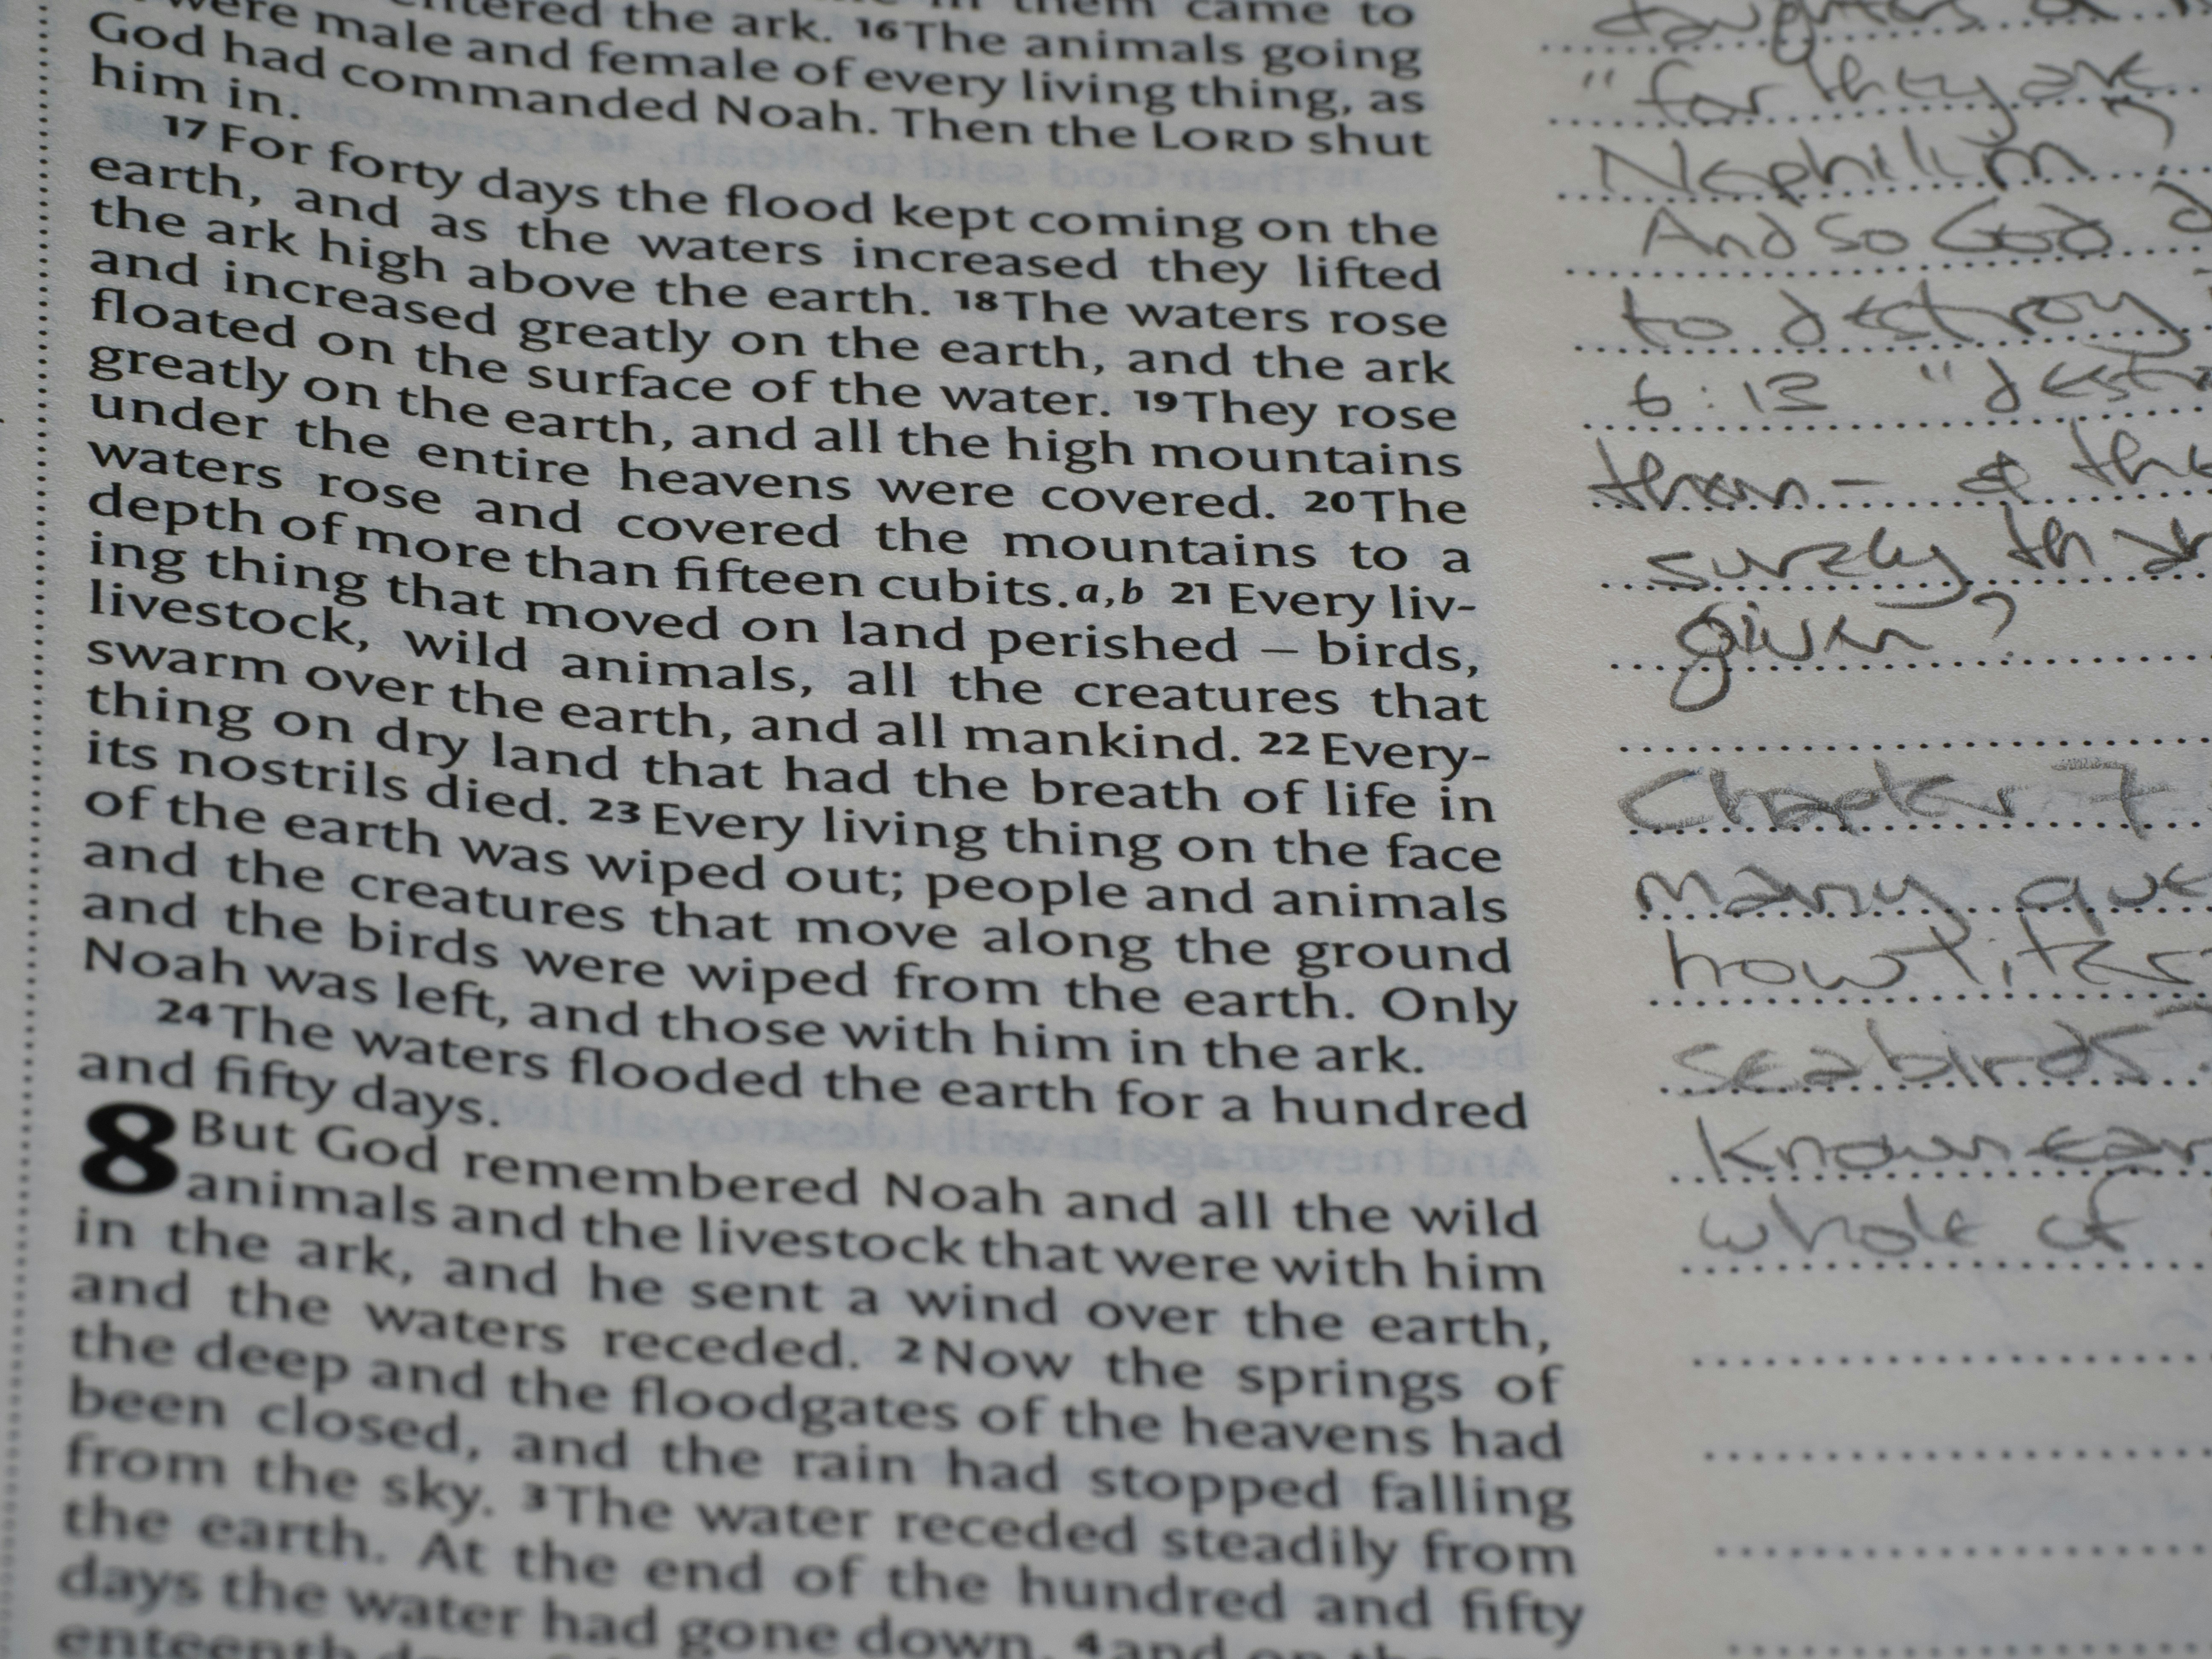 entered the ark. 16 The animals going
were male and female of every living thing, as
God had commanded Noah. Then the LORD shut
him in.
17 For forty days the flood kept coming on the
earth, and as the waters increased they lifted
the ark high above the earth. 18 The waters rose
and increased greatly on the earth, and the ark
floated on the surface of the water. 19 They rose
greatly on the earth, and all the high mountains
under the entire heavens were covered. 20 The
waters rose and covered the mountains to a
depth of more than fifteen cubits.a,b 21 Every liv-
ing thing that moved on land perished – birds,
livestock, wild animals, all the creatures that
swarm over the earth, and all mankind. 22 Every-
thing on dry land that had the breath of life in
its nostrils died. 23 Every living thing on the face
of the earth was wiped out; people and animals
and the creatures that move along the ground
and the birds were wiped from the earth. Only
Noah was left, and those with him in the ark.
24 The waters flooded the earth for a hundred
and fifty days.
8 But God remembered Noah and all the wild
animals and the livestock that were with him
in the ark, and he sent a wind over the earth,
and the waters receded. 2 Now the springs of
the deep and the floodgates of the heavens had
been closed, and the rain had stopped falling
from the sky. 3 The water receded steadily from
the earth. At the end of the hundred and fifty
days the water had gone down, 4 and on
daughters
"for they are
Nephilim"
And so God
to destroy
6:13 "dest
them - & the
surely
given?
Chapter 7
many que
how liter
seabirds?
known ear
whole of